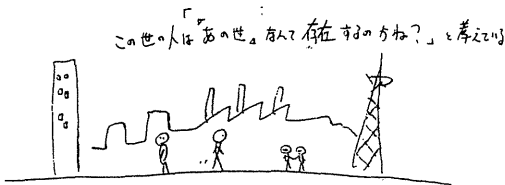 この世の人は「『あの世』なんて存在するのかね？」と考えている